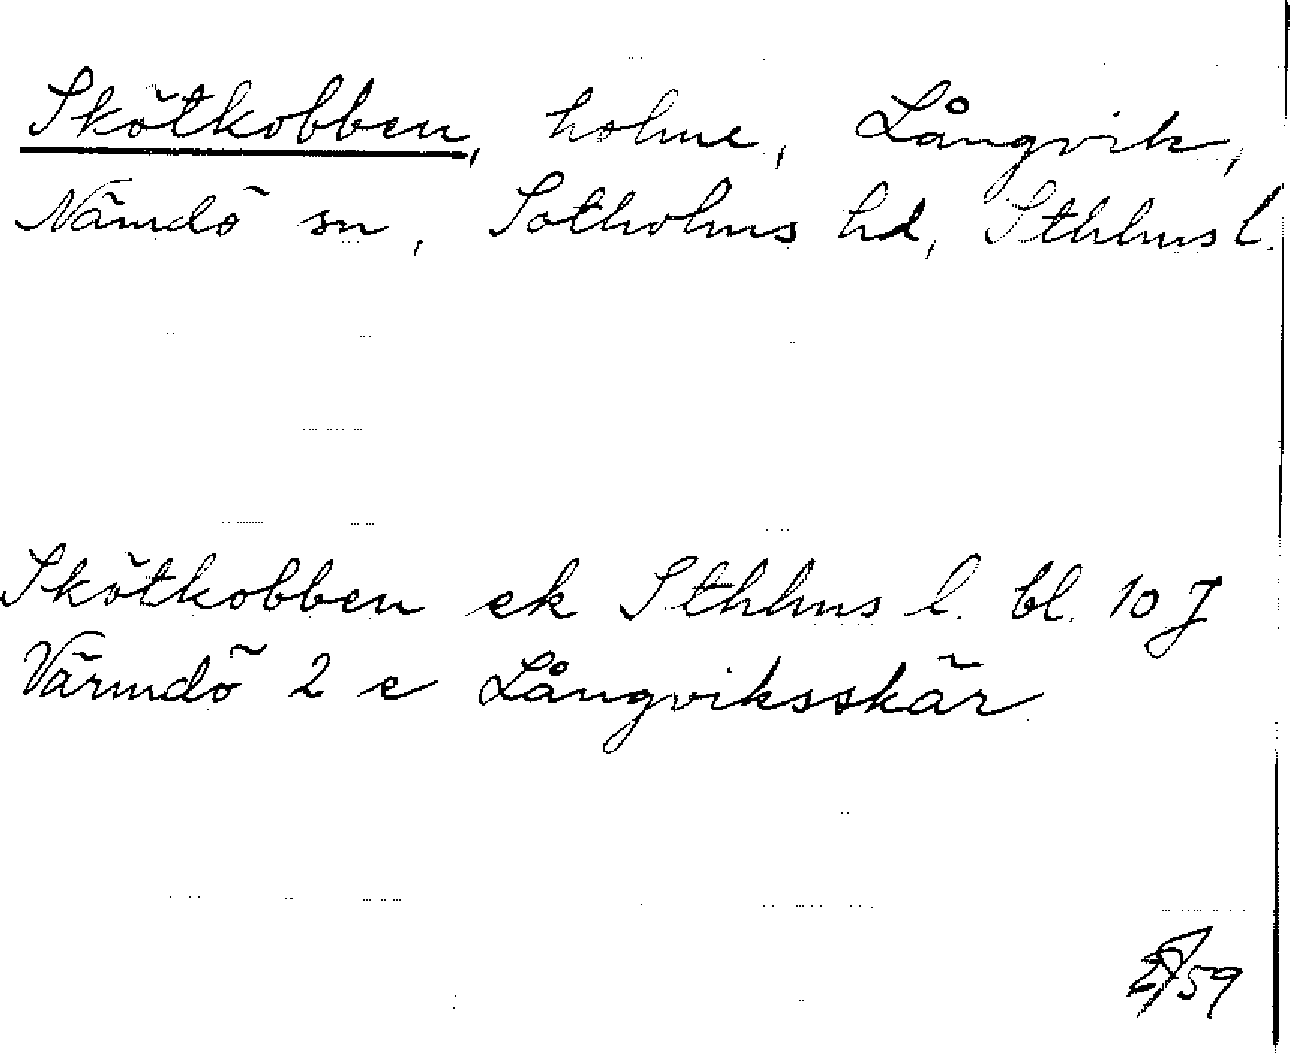 Skötkobben, holme, Långvik,
Nämdö sn, Sotholms hd, Sthlms l.
Skötkobben ek Sthlms l. bl. 10 J
Värmdö 2 e Långviksskär
59